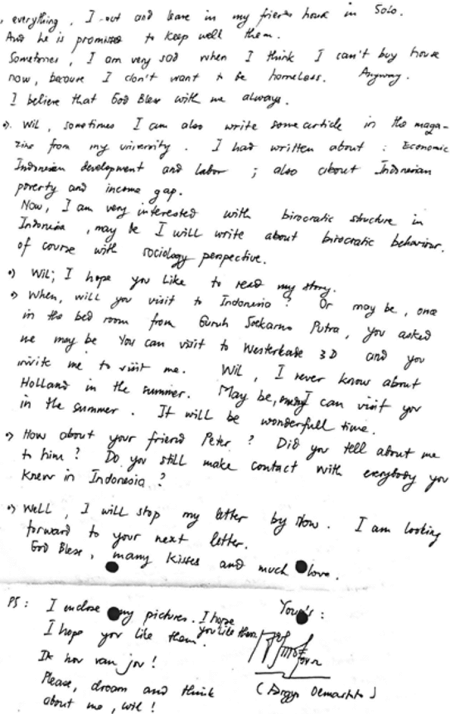 everything, I put and leave in my friends house in Solo.
And he is promised to keep well them.
Sometimes, I am very sad when I think I can't buy house
now, becouse I don't want to be homeless. Anyway.
I believe that God Bless with me always.
Wil, sometimes I am also write some article in the maga-
zine from my university. I had written about : Economic
Indonesian development and labor ; also about Indonesian
poverty and income gap.
Now, I am very interested with birocratic structure in
Indonesia, may be I will write about birocratic behaviour.
of course with sociology perspective.
Wil, I hope you like to read my story.
When, will you visit to Indonesia ? Or may be, one
in the bed room from Guruh Soekarno Putra, you asked
me may be You can visit to Westerkade 3D and you
invite me to visit me. Wil, I never know about
Holland in the summer. May be, I can visit you
in the summer. It will be wonderfull time.
How about your friend Peter ? Did you tell about me
to him ? Do you still make contact with everybody you
knew in Indonesia ?
Well, I will stop my letter by now. I am looking
forward to your next letter.
God Bless, many kisses and much love.
PS : I enclose my pictures. I hope you like them. Yours :
I hope you like them.
Ik hou van jou !
Please, dream and think
about me, Wil !